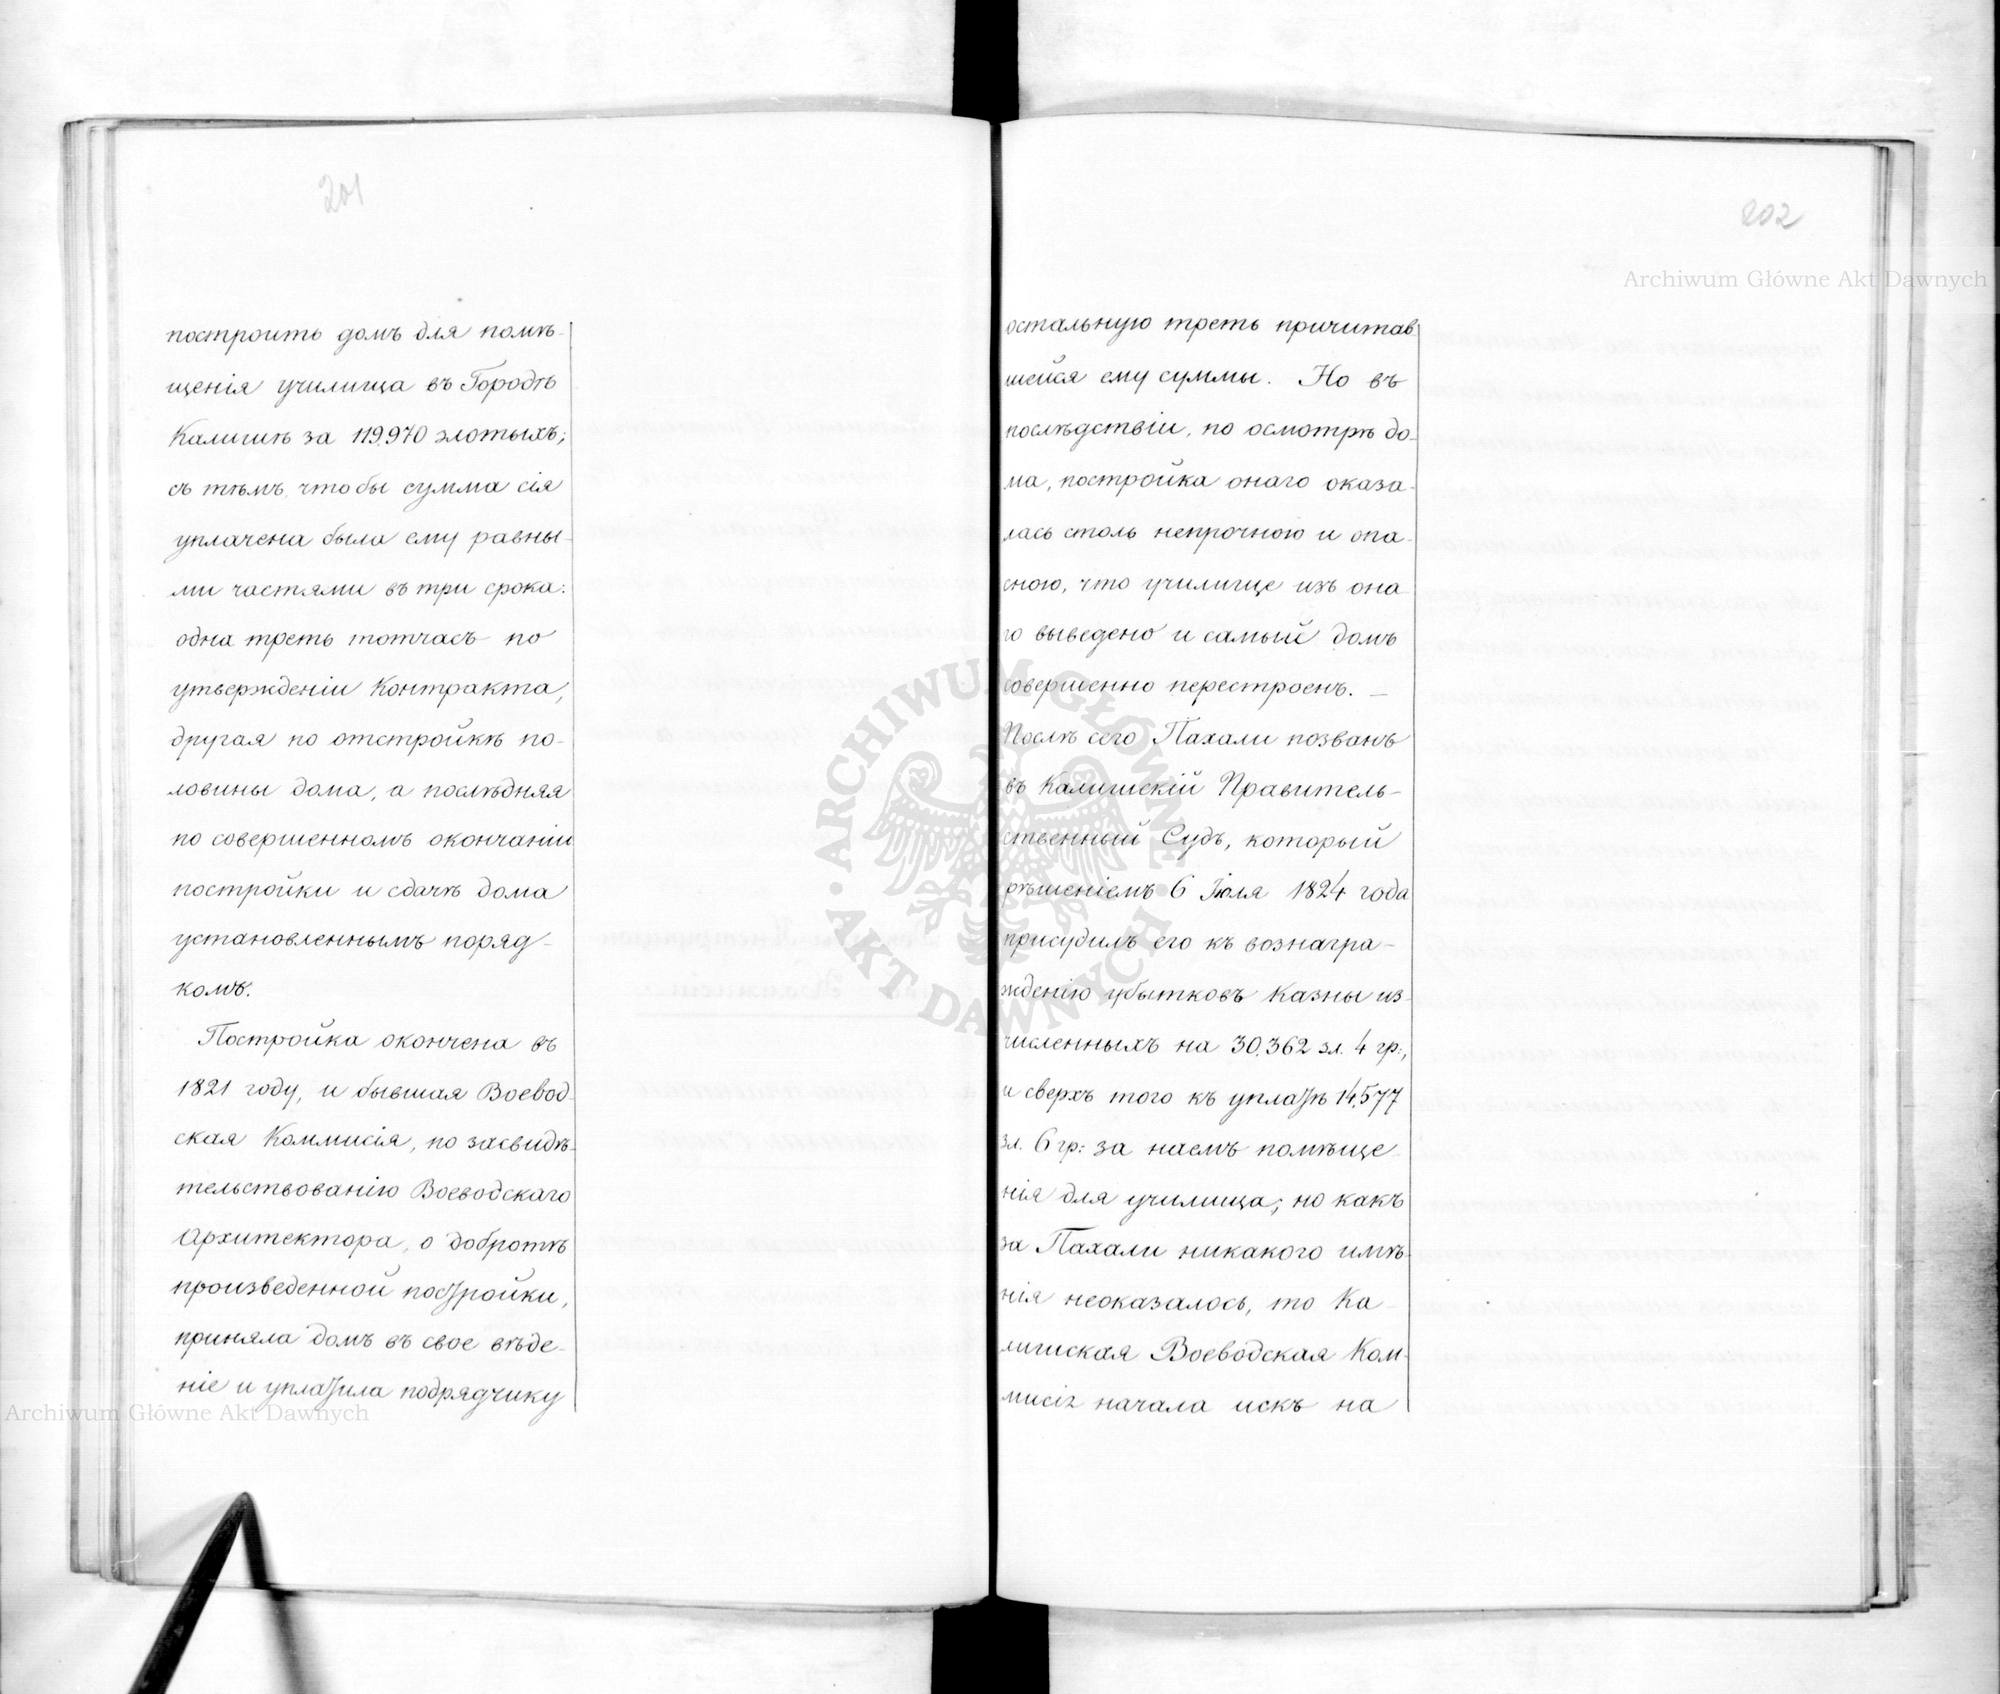 201
построить домъ для помѣ-
щенія училища въ Городѣ
Калишѣ за 119.970 злотыхъ;
съ тѣмъ, что бы сумма сія
уплачена была ему равны-
ми частями въ три срока:
одна треть тотчасъ по
утвержденіи Контракта,
другая по отстройкѣ по-
ловины дома, а послѣдняя
по совершенномъ окончаніи
постройки и сдачѣ дома
установленнымъ поряд-
комъ.
Постройка окончена въ
1821 году, и бывшая Воевод-
ская Коммисія, по засвидѣ-
тельствованію Воеводскаго
Архитектора, о добротѣ
произведенной постройки,
приняла домъ въ свое вѣде-
ніе и уплатила подрядчику
202
остальную треть причитав-
шейся ему суммы. Но въ
послѣдствіи, по осмотрѣ до-
ма, постройка онаго оказа-
лась столь непрочною и опа-
сною, что училище изъ она
го выведено и самый домъ
совершенно перестроенъ. —
Послѣ сего Пахали позванъ
въ Калишскій Правитель-
ственный Судъ, который
рѣшеніемъ 6 Іюля 1824 года
присудилъ его къ вознагра-
жденію убытковъ Казны из-
численныхъ на 30.362 зл. 4 гр:,
и сверхъ того къ уплатѣ 14.577
зл. 6 гр: за наемъ помѣще-
нія для училища; но какъ
за Пахали никакого имѣ-
нія неоказалось, то Ка-
лишская Воеводская Ком-
мисія начала искъ на
Archiwum Główne Akt Dawnych
ARCHIWUM GŁÓWNE AKT DAWNYCH
Archiwum Główne Akt Dawnych